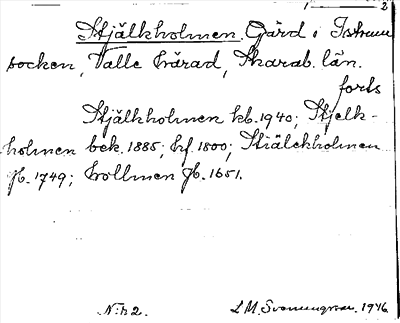 1 2
Stjälkholmen. Gård i Istrum
socken, Valle härad, Skarab. län.
forts
Stjälkholmen kb. 1940; Stjelk-
holmen bek. 1885; hf. 1800; Stiälckholmen
jb. 1749; hollmen jb. 1651.
N:h 2. L M. Svanungson. 1946